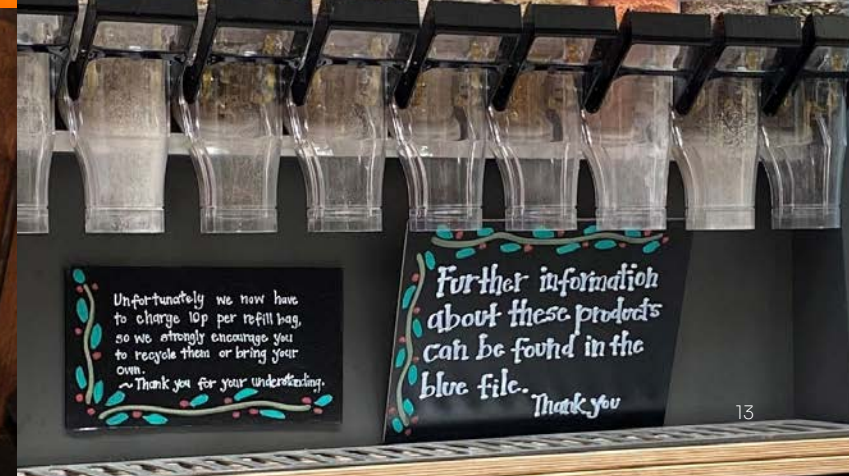 Unfortunately we now have
to charge 10p per refill bag,
so we strongly encourage you
to recycle them or bring your
own.
~ Thank you for your understanding.
Further information
about these products
can be found in the
blue file.
Thank you
13